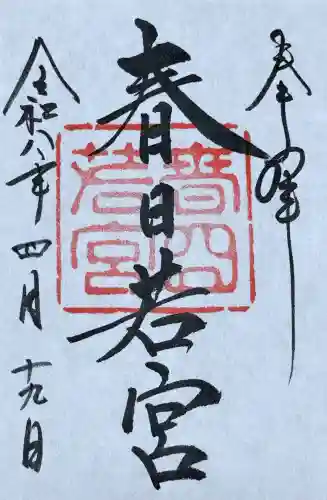 奉拝
春日若宮
春日
若宮
令和八年四月十九日